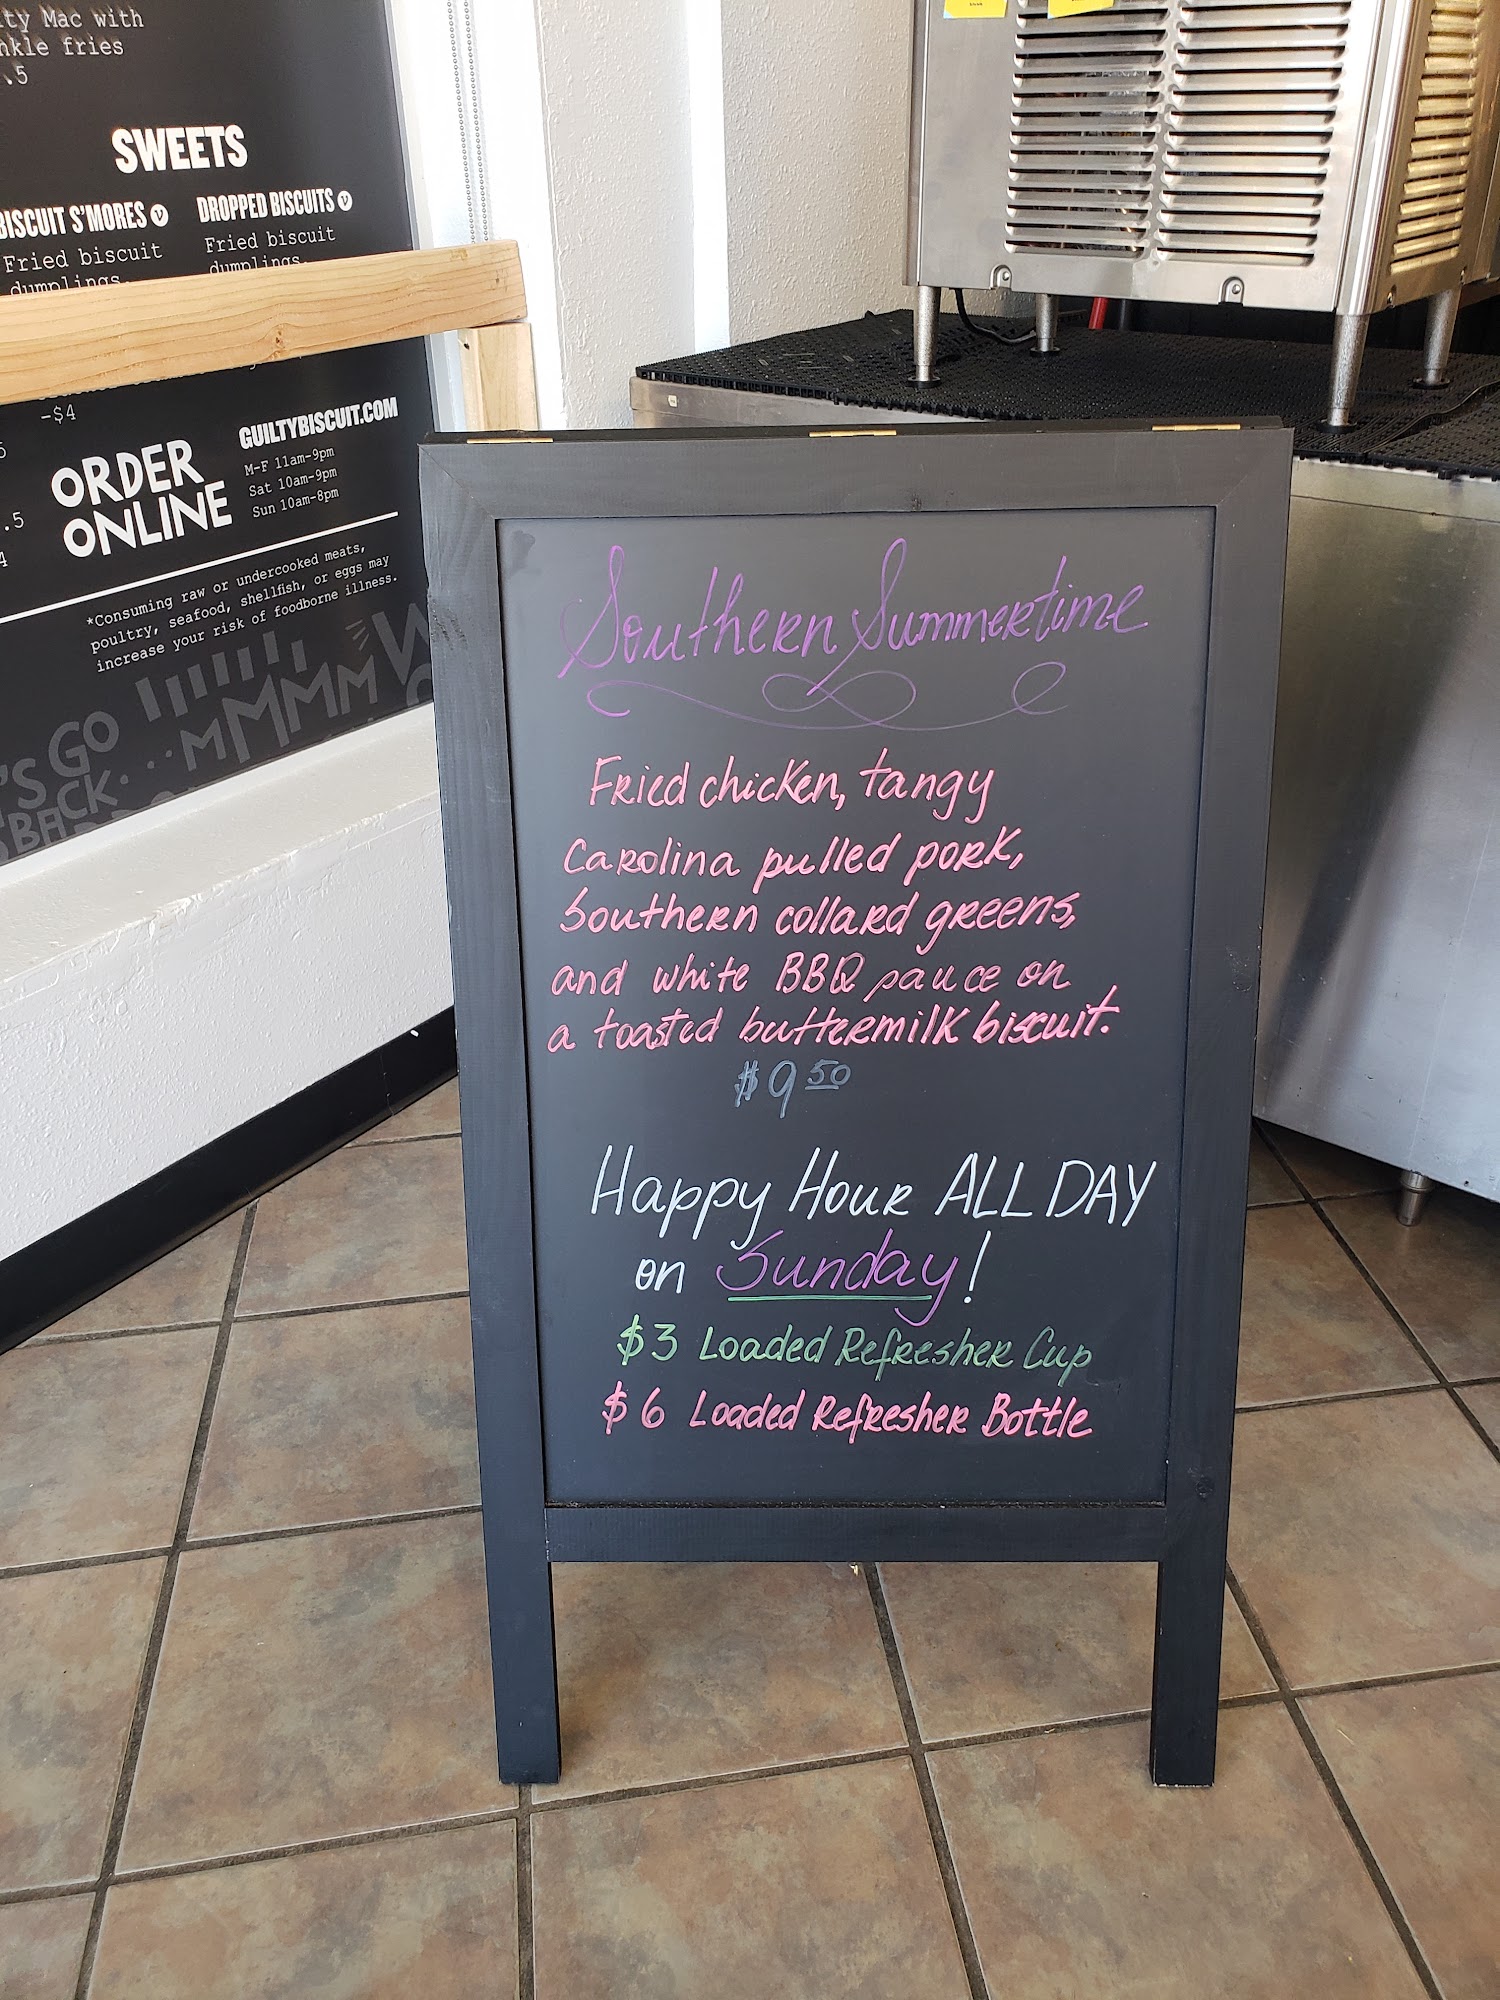 Mac with
fries
.5
SWEETS
BISCUIT S'MORES V
Fried biscuit
dumplings
DROPPED BISCUITS V
Fried biscuit
dumplings
-$4
.5
4
ORDER
ONLINE
GUILTYBISCUIT.COM
M-F 11am-9pm
Sat 10am-9pm
Sun 10am-8pm
*Consuming raw or undercooked meats,
poultry, seafood, shellfish, or eggs may
increase your risk of foodborne illness.
GO
BACK
MMMM
Southern Summertime
Fried chicken, tangy
Carolina pulled pork,
Southern collard greens,
and white BBQ sauce on
a toasted buttermilk biscuit.
$9 50
Happy Hour ALL DAY
on Sunday!
$3 Loaded Refresher Cup
$6 Loaded Refresher Bottle